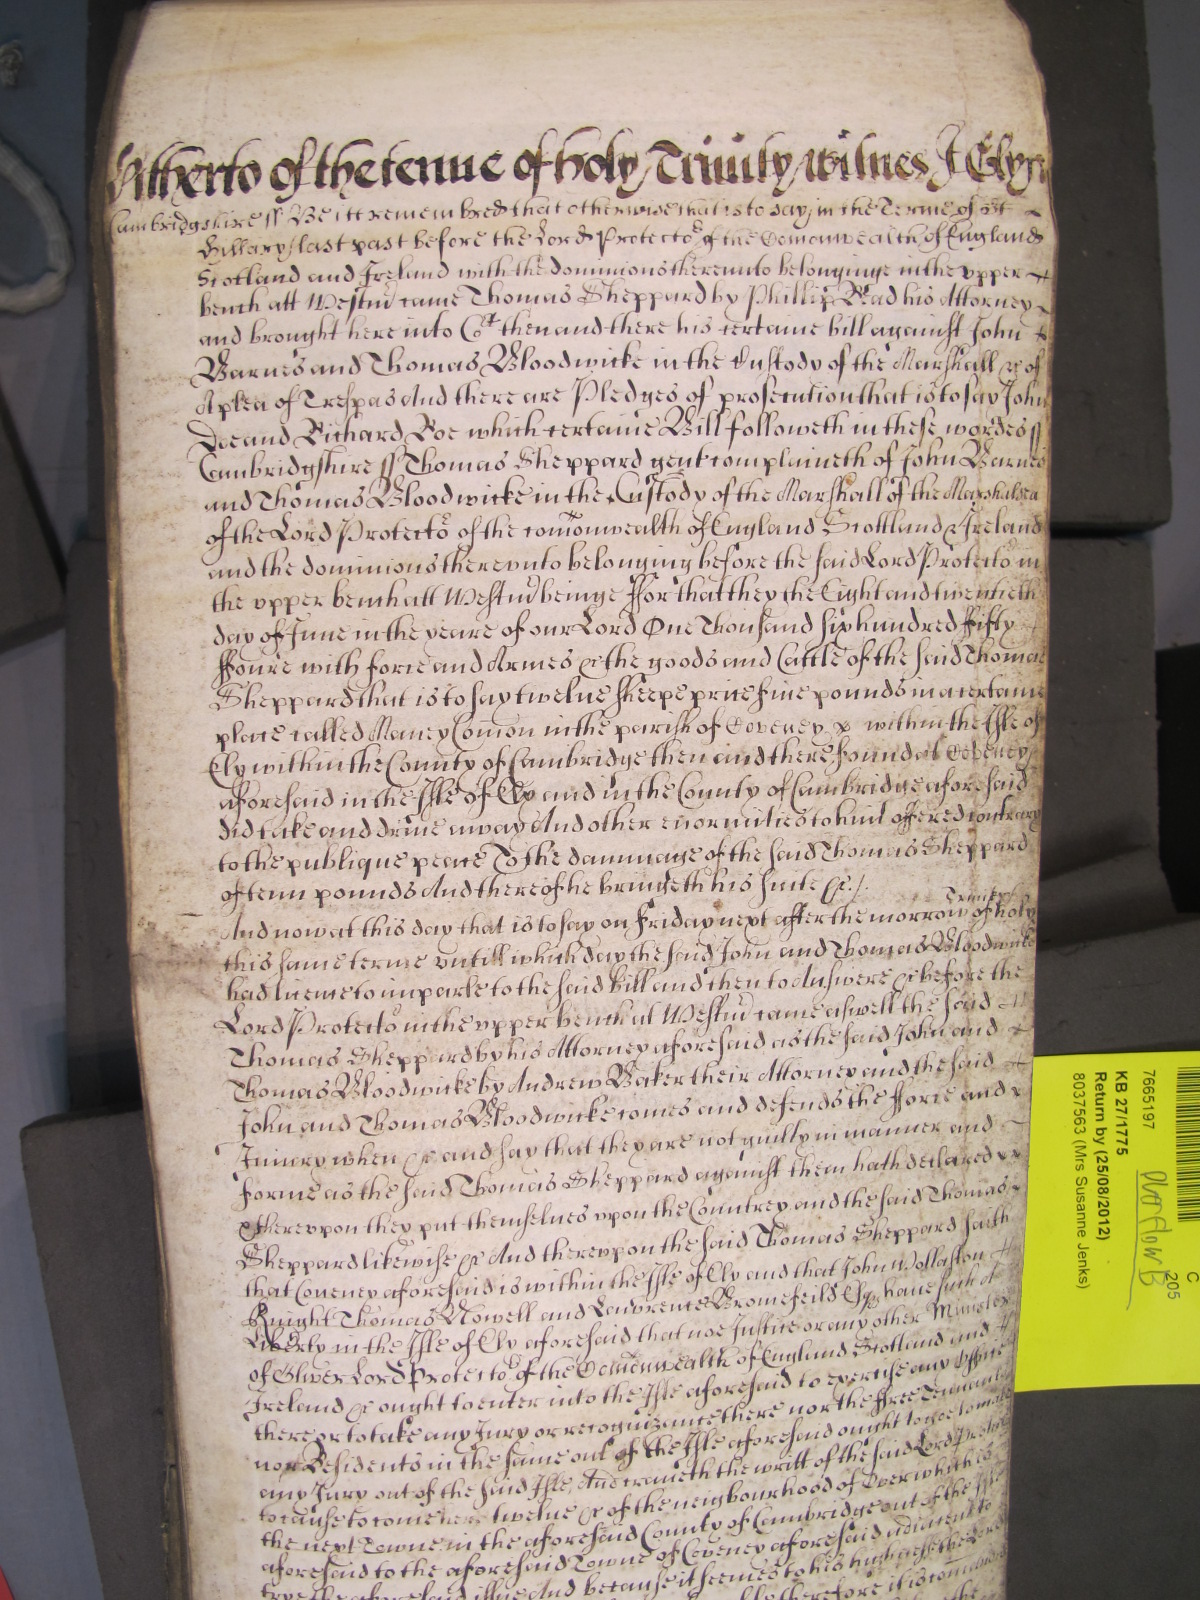 Hitherto of the terme of holy Trinity witnes J Glyn
Cambridgshire ss Be itt remembred that otherwise that is to say in the Terme of St
Hillary last past before the Lord Protector of the Comonwealth of England
Scotland and Ireland with the dominions thereunto belonginge in the upper
bench att Westm came Thomas Sheppard by Phillip Read his Attorney
and brought here into Cort then and there his certaine bill against John
Barnes and Thomas Bloodwicke in the Custody of the Marshall &c of
A plea of Trespas And there are Pledges of prosecution that is to say John
Doe and Richard Roe which certaine Bill followeth in these wordes ss
Cambridgshire ss Thomas Sheppard gent complaineth of John Barnes
and Thomas Bloodwicke in the Custody of the Marshall of the Marshalsea
of the Lord Protector of the comonwealth of England Scotland & Ireland
and the dominions thereunto belonging before the said Lord Protector in
the upper bench att Westm beinge ffor that they the Eight and twentieth
day of June in the yeare of our Lord One Thousand six hundred ffifty
ffoure with force and Armes &c the goods and Cattle of the said Thomas
Sheppard that is to say twelve sheepe price five pounds in a certaine
place called Maney Comon in the parish of Coveney &c within the Isle of
Ely within the County of Cambridge then and there found at Coveney
aforesaid in the Isle of Ely and in the County of Cambridge aforesaid
did take and drive away And other enormities to him offered contrary
to the publique peace To the dammage of the said Thomas Sheppard
of tenn pounds And thereof he bringeth his suite &c /.
And now at this day that is to say on Friday next after the morrow of holy Trinity
this same terme untill which day the said John and Thomas Bloodwicke
had licence to imparle to the said bill and then to Answere &c before the
Lord Protector in the upper bench at Westm came aswell the said
Thomas Sheppard by his Attorney aforesaid as the said John and
Thomas Bloodwicke by Andrew Baker their Attorney and the said
John and Thomas Bloodwicke comes and defends the fforce and
Iniury when &c and say that they are not guilty in manner and
forme as the said Thomas Sheppard against them hath declared
& thereupon they put themselves upon the Countrey and the said Thomas
Sheppard likewise &c And thereupon the said Thomas Sheppard saith
that Coveney aforesaid is within the Isle of Ely and that John Wollaston
Knight Thomas Nowell and Lawrence Bromfeild Esqs have such A
Liberty in the Isle of Ely aforesaid that noe Justice or any other Minister
of Oliver Lord Protector of the Comonwealth of England Scotland and
Ireland &c ought to enter into the Isle aforesaid to exercise any Office
there or to take any Jury or recognizance there nor the ffree Tennants
nor Residents in the same out of the Isle aforesaid ought to goe to make
any Jury out of the said Isle And craveth the writt of the said Lord Protector
to cause to come here twelve &c of the neigbourhood of Over which is
the next Towne in the aforesaid County of Cambridge out of the Isle
aforesaid to the aforesaid Towne of Coveney aforesaid adiacent to
trye the aforesaid issue And because it seemes to his highnesse the Lord
therefore it is commanded
7665197
KB 27/1775
Return by (25/08/2012)
8037563 (Mrs Susanne Jenks)
C
205